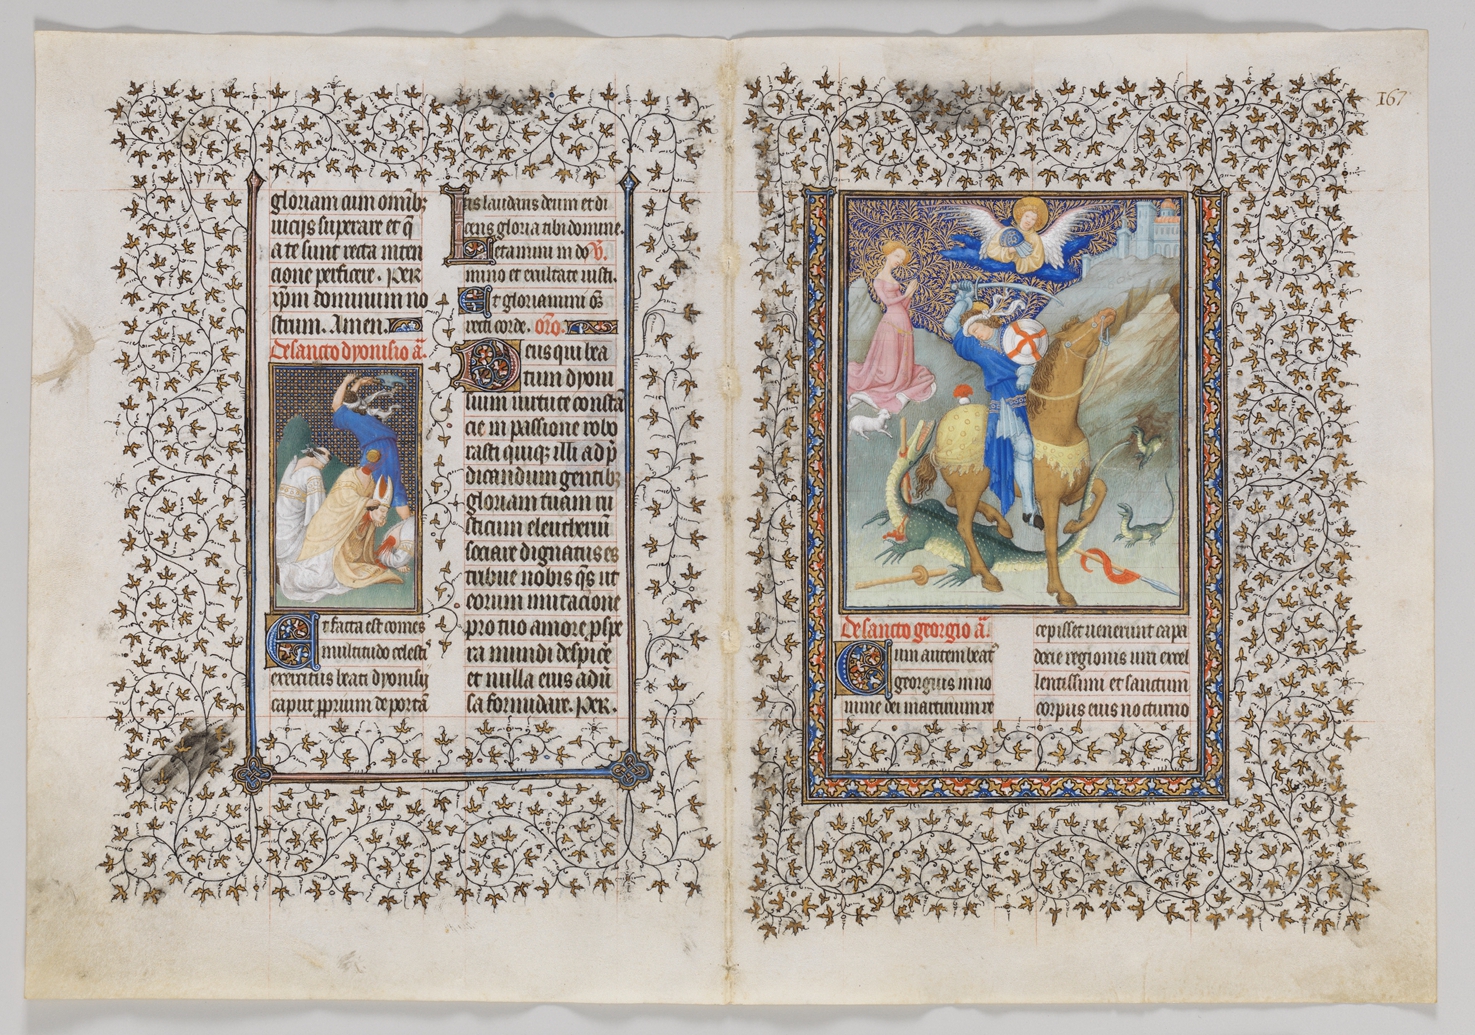 gloriam cum omnibꝫ
iuciis superare et q̃
a te sunt recta inten
cione perficere. Per
ip̃m dominum no
strum. Amen.
De sancto dyonisio a̅.
Et facta est comes
multitudo celesti
exercitus beati dyonisii
caput ꝓprium deportã
tis laudans deum et di
cens gloria tibi domine.
Letamini in do V̷.
mino et exultate iusti.
Et gloriamini õs
recti corde. or̃o.
Deus qui bea
tum dyoni
sium uirtute constã
cie in passione robo
rasti quiqꝫ illi ad p̃
dicandum gentibꝫ
gloriam tuam ru
sticum eleutherii
sociare dignatus es
tribue nobis q̃s ut
eorum imitacione
pro tuo amore ꝓspe
ra mundi despice
et nulla eius aduer
sa formidare. Per.
167
De sancto georgio a̅.
Cum autem beat⁹
georgius inno
mine dei martirium re
cepisset uenerunt capa
docie regionis uiri excel
lentissimi et sanctum
corpus eius nocturno